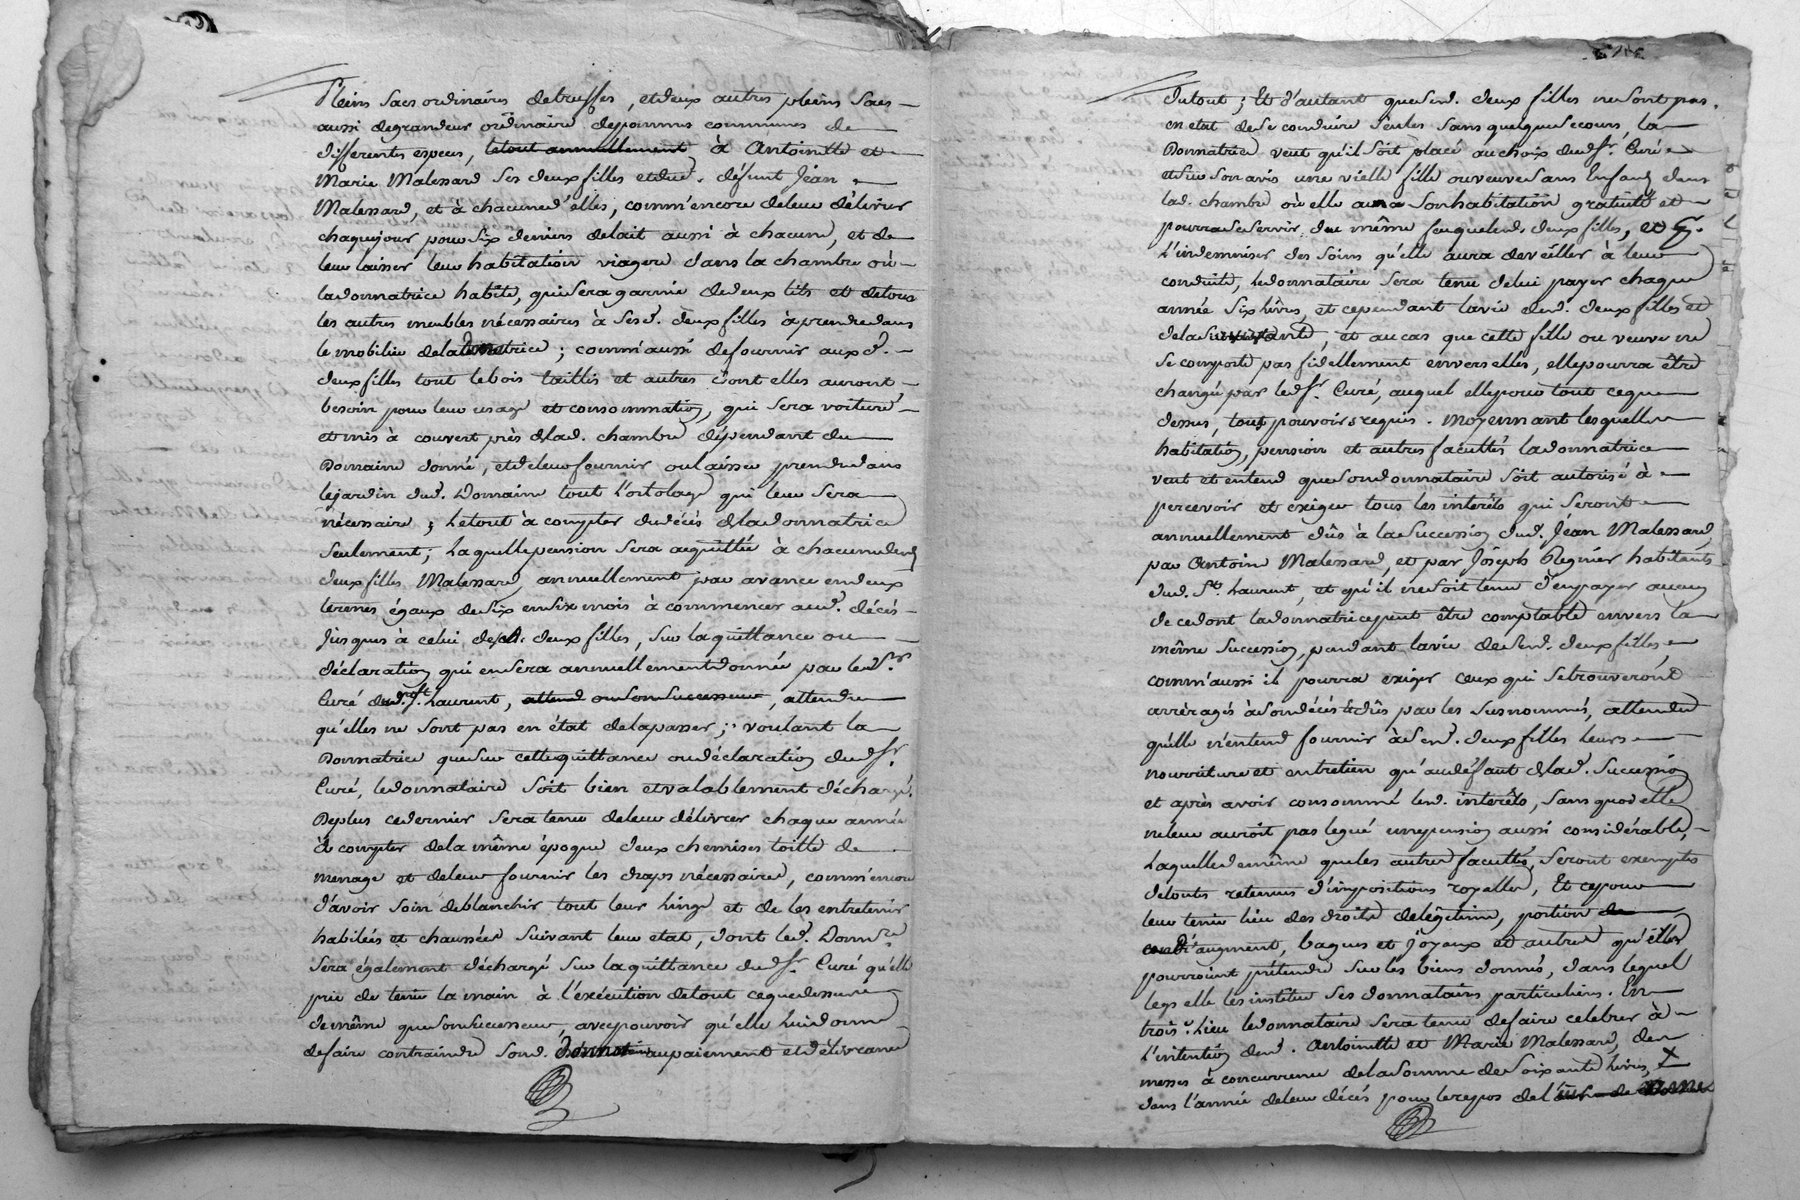 Pleins sacs ordinaires detruffes, etdeux autres pleins sacs
aussi degrandeur ordinaire depommes communes de
differentes especes, letout annuellement à Antoinette et
Marie Malessard ses deux filles etdud. défunt Jean
Malessard, et à chacuned'elles, comm'encore deleur délivrer
chaquejour pour six deniers delait aussi à chacune, et de
leur laisser leur habitation viagere dans la chambre où
ladonnatrice habite, quisera garnie dedeux lits et detous
les autres meubles nécessaires à sesd. deux filles à prendredans
le mobilier deladonnatrice; comm'aussi defournir auxd.
deux filles tout lebois taillis et autres dont elles auront
besoin pour leur usage et consommation, qui sera voituré
et mis à couvert près delad. chambre dépendant du
Domaine donné, etdeleur fournir oulaisser prendredans
lejardin dud. Domaine tout l'ortolage qui leur sera
nécessaire; letout à compter dudécès deladonnatrice
seulement; Laquellepension sera acquittée à chacunedesd
deux filles Malessard, annuellement par avance endeux
termes égaux desix ensix mois à commencer aud. décès
jusques à celui desd. deux filles, sur laquittance ou
déclaration qui ensera annuellementdonnée par led. Sr.
Curé dud. St. Laurent, ousonsuccesseur, attendu
qu'elles ne sont pas en état delapasser; voulant la
Donnatrice quesur cettequittance oudéclaration dud. Sr.
Curé, ledonnataire soit bien etvalablement déchargé.
Deplus cedernier seratenu deleur délivrer chaque année
à compter dela même époque deux chemises toille de
menage et deleur fournir les draps nécessaires, comm'encore
d'avoir soin deblanchir tout leur linge et de les entretenir
habilées et chaussées suivant leur etat, dont led. Donnre.
sera également déchargé sur laquittance dud. Sr. Curé qu'elle
prie de tenir la main à l'exécution detout cequedessus
demême quesonsuccesseur, avecpouvoir qu'elle luidonne
defaire contraindre sond. aupaiement etdélivrance
dutout; Et d'autant quesesd. deux filles nesont pas
en etat dese conduire seules sans quelquesecours, la
Donnatrice veut qu'il soit placé auchoix dud. Sr. Curé
etsur son avis une vielle fille ouveuve sans Enfans dans
lad. chambre où elle aura sonhabitation gratuite et
pourraseservir du même feuquelesd. deux filles, et
l'indemniser des soins qu'elle aura deveiller à leur
conduite, ledonnataire sera tenu delui payer chaque
année six livres, et cependant lavie desd. deux filles et
delasurvivante, et aucas que cette fille ou veuve ne
se comporte pas fidellement enverselles, ellepourra être
changée par led. Sr. Curé, auquel ellepour tout ceque
dessus, tout pouvoirs requis. Moyennant lesquelles
habitation, pension et autres facultés ladonnatrice
veut et entend quesondonnataire soit autorisé à
percevoir et exiger tous les interêts qui seront
annuellement dûs à lasuccession dud. Jean Malessard,
par Antoine Malessard, et par Joseph Regnier habitants
dud. St. Laurent, et qu'il nesoit tenu d'enpayer aucun
de cedont ladonnatricepeut être comptable envers la
même succession, pendant lavie desesd. deux filles
comm'aussi il pourra exiger ceux qui setrouveront
arrèragés àsondécès dûs par les susnommés, attendu
qu'elle n'entend fournir àsesd. deux filles leurs
nourriture et entretien qu'audéfaut delad. succession
et après avoir consommé lesd. interêts, sans quoi elle
neleur auroit pas legué unepension aussi considérable,
Laquelledemême queles autres facultés, seront exemptes
detoutes retenues d'impositions royalles, Et cepour
leur tenir lieu des droits delégitime, portion
d'augment, bagues et joyaux et autres qu'elles
pourroient prétendre sur les biens donnés, dans lequel
legs elle les institue ses donnataires particulieres. En
trois.e lieu ledonnataire sera tenu defaire celebrer à
l'intention desd. Antoinette et Marie Malessard, des
messes à concurrence delasomme de soixante livres,
dans l'année deleur décès pour lerepos del'